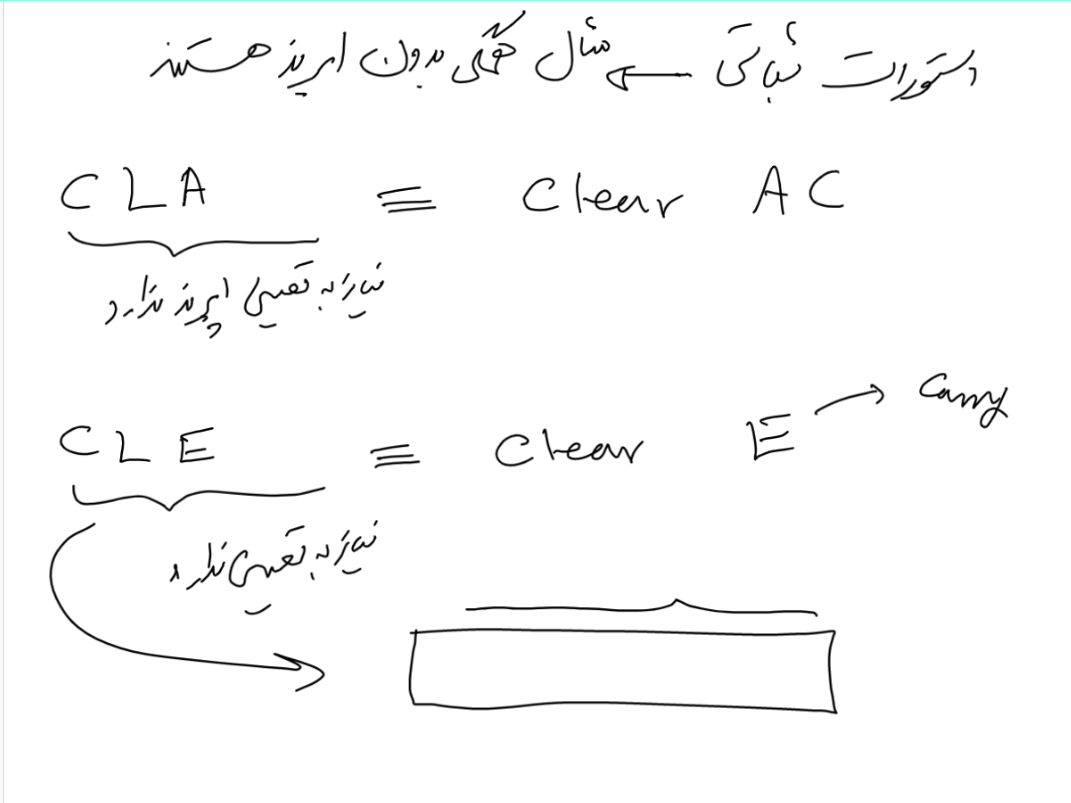 دستورات ثباتی ← مثال همگی بدون اپرند هستند
CLA ≡ Clear AC
نیاز به تعیین اپرند ندارد
CLE ≡ Clear E → Carry
نیاز به تعیین ندارد